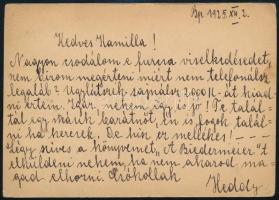 Bp. 1925. XII. 2.
Kedves Kamilla!
Nagyon csodálom a furcsa viselkedésedet,
nem bírom megérteni miért nem telefonálsz
legalább? Úgylátszik sajnálsz 2000 K-át kiad-
ni értem. Igaz, nekem így is jó! Te talál-
tál egy másik barátnőt, én is fogok talál-
ni ha keresek. De hisz ez mellékes! - - - -
Légy szíves a könyvemet, "A Biedermeier"-t
elküldeni nekem, ha nem akarod ma-
gad elhozni. Csókollak
Heddy